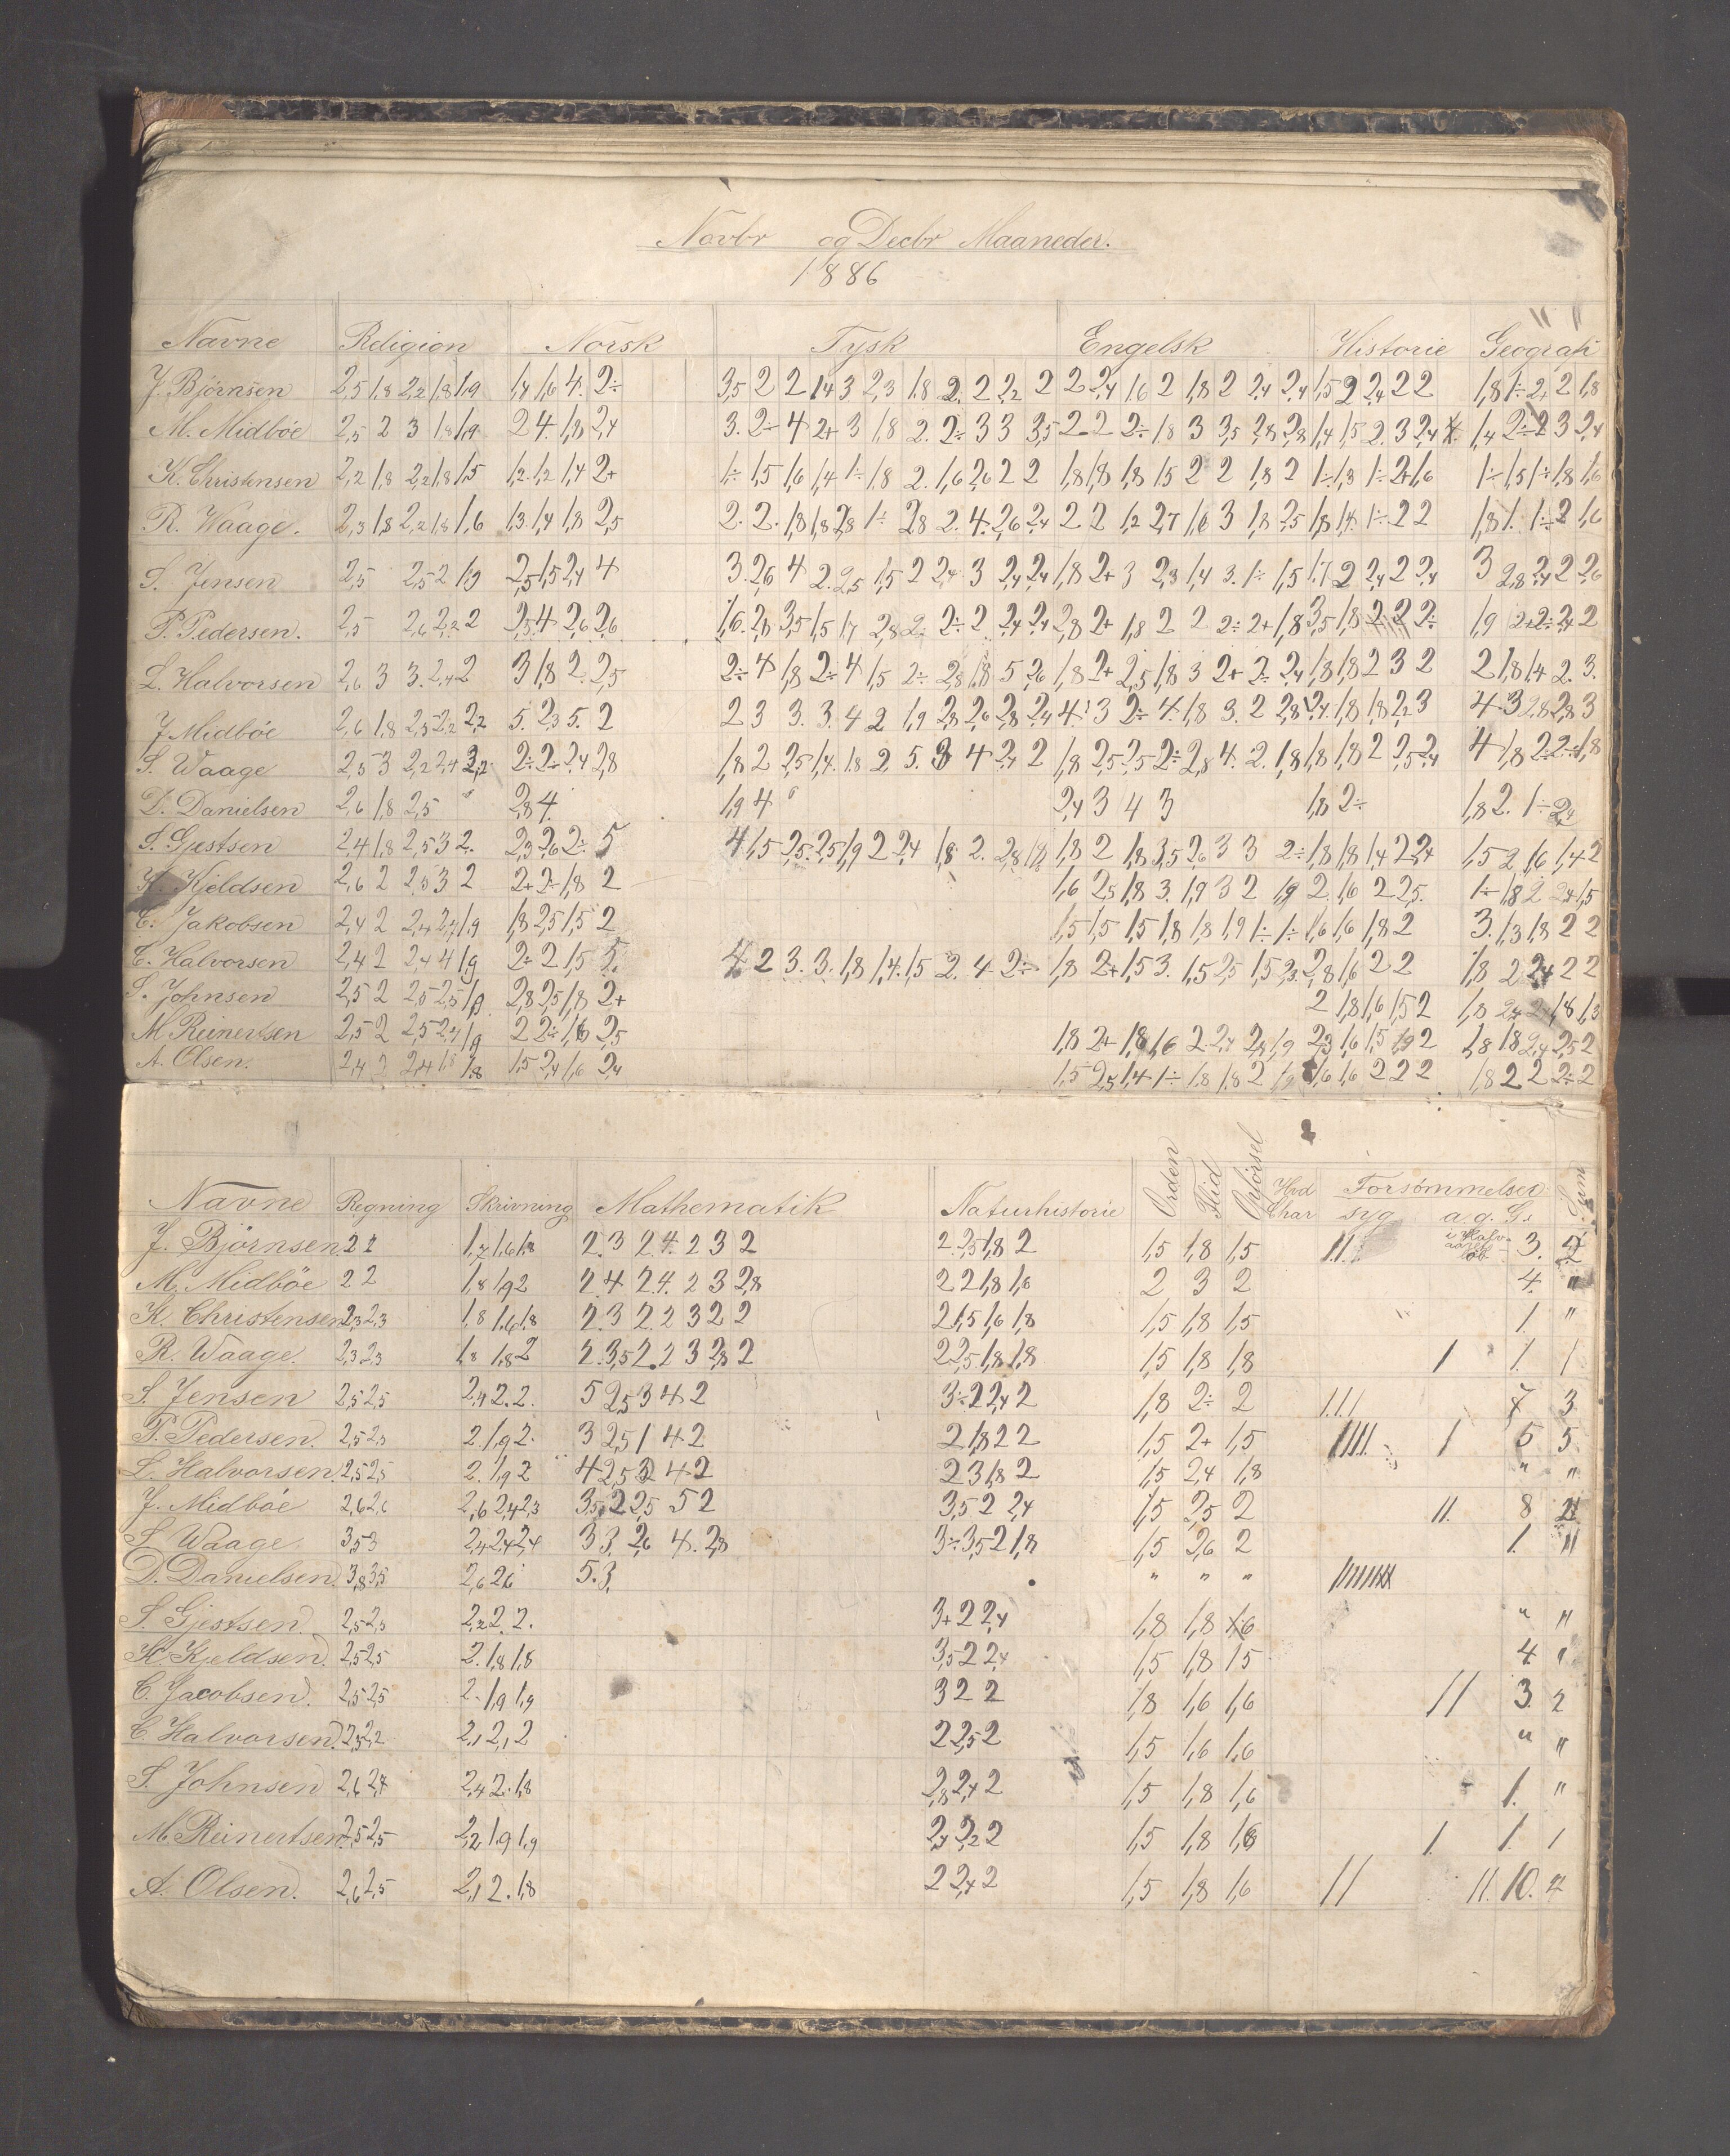 Novbr og Decbr Maaneder.
1886
Navne Religion Norsk Tysk Engelsk Historie Geografi
J. Björnsen 2,5 1,8 2,2 1,8 1,9 1,4 1,6 4. 2÷ 3,5 2 2 1,4 3 2,3 1,8 2. 2 2,2 2 2 2,4 1,6 2 1,8 2 2,4 2,4 1,5 2 2,4 2 2 1,8 1÷ 2+ 2 1,8
M. Midböe 2,5 2 3 1,8 1,9 2 4. 1,8 2,4 3. 2÷ 4 2+ 3 1,8 2. 2÷ 3 3 3,5 2 2 2÷ 1,8 3 3,5 2,8 2,8 1,4 1,5 2. 3 2,4 1,4 2÷ 2 3 2,4
K. Christensen 2,2 1,8 2,2 1,8 1,5 1,2 1,2 1,4 2+ 1÷ 1,5 1,6 1,4 1÷ 1,8 2. 1,6 2,6 2 2 1,8 1,8 1,8 1,5 2 2 1,8 2 1÷ 1,3 1÷ 2+ 1,6 1÷ 1,5 1÷ 1,8 1,6
R. Waage. 2,3 1,8 2,2 1,8 1,6 1,3 1,4 1,8 2,5 2. 2. 1,8 1,8 2,8 1÷ 2,8 2. 4. 2,6 2,4 2 2 1,2 2,7 1,6 3 1,8 2,5 1,8 1,4 1÷ 2 2 1,8 1. 1÷ 2 1,6
S. Jensen 2,5 2,5 2 1,9 2,5 1,5 2,4 4 3. 2,6 4 2. 2,5 1,5 2 2,4 3 2,4 2,4 1,8 2+ 3 2,3 1,4 3. 1÷ 1,5 1,7 2 2,4 2 2,4 3 2,8 2,4 2 2,6
P. Pedersen. 2,5 2,6 2,2 2 2,5 4 2,6 2,6 1,6 2,8 3,5 1,5 1,7 2,8 2÷ 2÷ 2 2,4 2,4 2,8 2+ 1,8 2 2 2÷ 2+ 1,8 3,5 1,8 2 2 2÷ 1,9 2+ 2÷ 2,4 2
L. Halvorsen 2,6 3 3. 2,4 2 3 1,8 2. 2,5 2÷ 4 1,8 2÷ 4 1,5 2÷ 2,8 1,8 5 2,6 1,8 2+ 2,5 1,8 3 2+ 2÷ 2,4 1,8 1,8 2 3 2 2 1,8 1,4 2. 3.
J Midböe 2,6 1,8 2,5 2,2 2,2 5. 2,3 5. 2 2 3 3. 3. 4 2 1,9 2,8 2,6 2,8 2,4 4 3 2÷ 4. 1,8 3. 2 2,8 2,4 1,8 1,8 2,2 3 4 3 2,8 2,8 3
S. Waage 2,5 3 2,2 2,4 3,2 2÷ 2÷ 2,4 2,8 1,8 2 2,5 1,4 1,8 2, 5. 3 4 2,4 2 1,8 2,5 2,5 2÷ 2,8 4. 2. 1,8 1,8 1,8 2 2,5 2,4 4 1,8 2÷ 2÷ 1,8
D. Danielsen 2,6 1,8 2,5 2,8 4. 1,9 4 2,4 3 4 3 1,8 2÷ 1,8 2. 1÷ 2,4
S. Gjestsen 2,4 1,8 2,5 3 2. 2,3 2,6 2÷ 5 4 1,5 2,5 2,5 1,9 2 2,4 1,8 2. 2,8 1,8 1,8 2 1,8 3,5 2,6 3 3 2÷ 1,8 1,8 1,4 2 2,4 1,5 2 1,6 1,4 2
K. Kjeldsen 2,6 2 2,5 3 2 2+ 2÷ 1,8 2 1,6 2,5 1,8 3. 1,9 3 2 1,9 2. 1,6 2 2,5. 1÷ 1,8 2 2,4 1,5
C. Jakobsen 2,4 2 2,4 2,4 1,9 1,8 2,5 1,5 2 1,5 1,5 1,5 1,8 1,8 1,9 1÷ 1÷ 1,6 1,6 1,8 2 3. 1,3 1,8 2 2
C. Halvorsen 2,4 2 2,4 4 1,9 2÷ 2 1,5 5. 4 2 3. 3. 1,8 1,4. 1,5 2. 4 2÷ 1,8 2+ 1,5 3. 1,5 2,5 1,5 2,3 2,8 1,6 2 2 1,8 2 2,4 2 2
S. Johnsen 2,5 2 2,5 2,5 1,9 2,8 2,5 1,8 2+ 2 1,8 1,6 1,5 2 1,8 2,4 2,4 1,8 1,3
M Reinertsen 2,5 2 2,5 2,4 1,9 2 2÷ 1,6 2,5 1,8 2+ 1,8 1,6 2. 2,4 2,8 1,9 2,3 1,6 1,5 1,9 2 1,8 1,8 2,4 2,5 2
A. Olsen. 2,4 2 2,4 1,8 1,8 1,5 2,4 1,6 2,4 1,5 2,5 1,4 1÷ 1,8 1,8 2 1,9 1,6 1,6 2 2 2 1,8 2 2 2÷ 2
Navne Regning Skrivning Mathematik Naturhistorie Orden Flid Opførsel Hvd Char Forsömmelser syg a.g. G. Sum
J. Björnsen 2 2 1,7 1,6 1,8 2. 3 2. 4. 2 3 2 2. 2,5 1,8 2 1,5 1,8 1,5 11. i Halv- 3.
M. Midböe 2 2 1,8 1,9 2 2. 4 2. 4. 2 3 2,8 2 2 1,8 1,6 2 3 2 4. "
K. Christensen 2,3 2,3 1,8 1,6 1,8 2. 3 2. 2 3 2 2 2 1,5 1,6 1,8 1,5 1,8 1,5 1. "
R. Waage. 2,3 2,3 1,8 1,8 2 2. 3,5 2. 2 3 2,8 2 2 2,5 1,8 1,8 1,5 1,8 1,8 1 1. 1
S. Jensen 2,5 2,5 2,4 2. 2. 5 2,5 3 4 2 3÷ 2 2,4 2 1,8 2÷ 2 111 7 3
P. Pedersen. 2,5 2,5 2. 1,9 2. 3 2,5 1 4 2 2 1,8 2 2 1,5 2+ 1,5 1111. 1 5 5
L. Halvorsen. 2,5 2,5 2. 1,9 2 4 2,5 3 4 2 2 3 1,8 2 1,5 2,4 1,8 " "
J. Midböe 2,6 2,6 2,6 2,4 2,3 3,5 2 2,5 5 2 3,5 2 2,4 1,5 2,5 2 11. 8 2
S Waage. 3,5 3 2,4 2,4 2,4 3 3. 2,6 4. 2,8 3÷ 3,5 2 1,8 1,5 2,6 2 1. "
D. Danielsen. 3,8 3,5 2,6 2,6 5. 3. " " "
S. Gjestsen. 2,5 2,5 2,2 2. 2. 3+ 2 2,4 1,8 1,8 1,6 " "
K. Kjeldsen. 2,5 2,5 2. 1,8 1,8 3,5 2 2,4 1,5 1,8 1,5 4 "
C. Jacobsen. 2,5 2,5 2. 1,9 1,9 3 2 2 1,8 1,6 1,6 11 3. 2
C. Halvorsen. 2,3 2,2 2,1 2,1 2 2 2,5 2 1,5 1,6 1,6 " "
S. Johnsen 2,6 2,7 2,4 2. 1,8 2,8 2,4 2 1,5 1,8 1,6 1. "
M Reinertsen. 2,5 2,5 2,2 1,9 1,9 2,4 2,2 2 1,5 1,8 1,8 1. 1. 1
A. Olsen. 2,6 2,5 2,1 2. 1,8 2 2,4 2 1,5 1,8 1,6 11 11. 10. 4